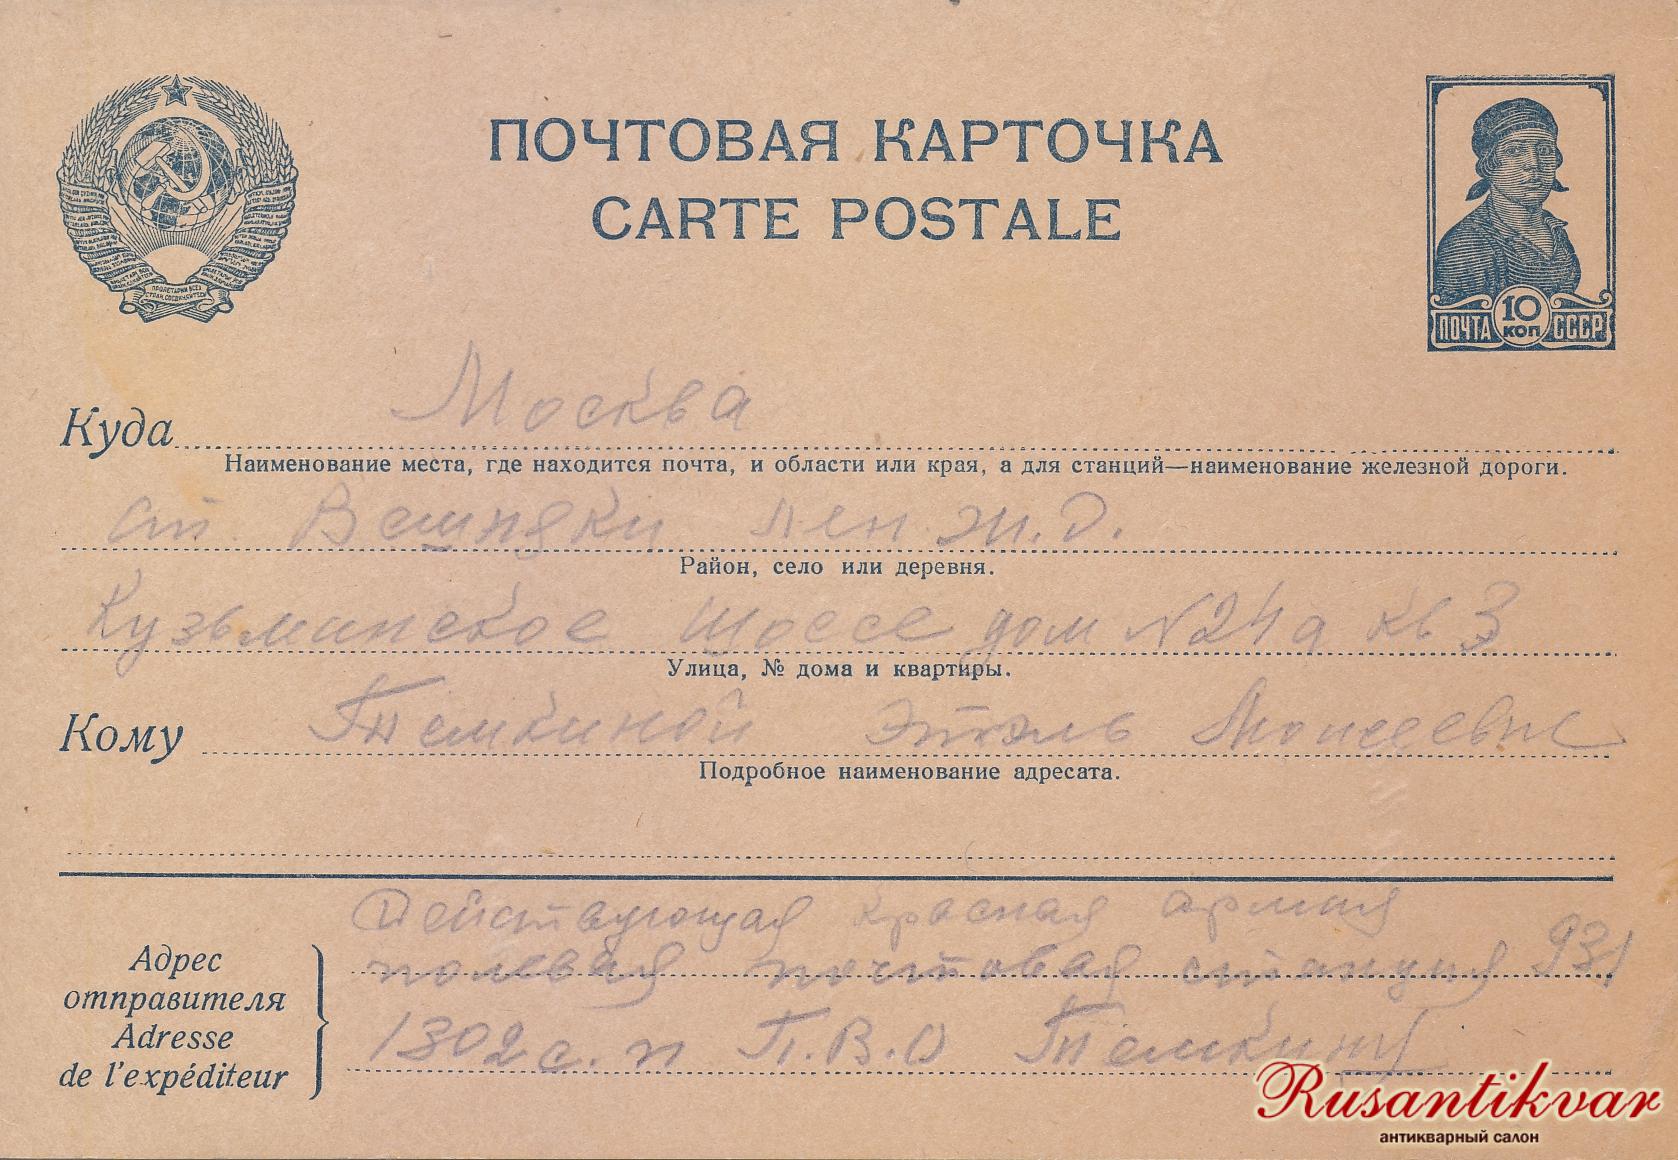 ПОЧТОВАЯ КАРТОЧКА
CARTE POSTALE
ПРОЛЕТАРИИ ВСЕХ
СТРАН, СОЕДИНЯЙТЕСЬ!
ПОЧТА 10 КОП СССР
Куда Москва
Наименование места, где находится почта, и области или края, а для станций—наименование железной дороги.
ст. Вешняки Лен. ж.д.
Район, село или деревня.
Кузьминское шоссе дом №24а кв 3
Улица, № дома и квартиры.
Кому Темкиной Этель Моисеевне
Подробное наименование адресата.
Действующая красная армия
полевая почтовая станция 931
1302 с. п П.В.О Темкину
Адрес
отправителя
Adresse
de l'expéditeur
Rusantikvar
антикварный салон